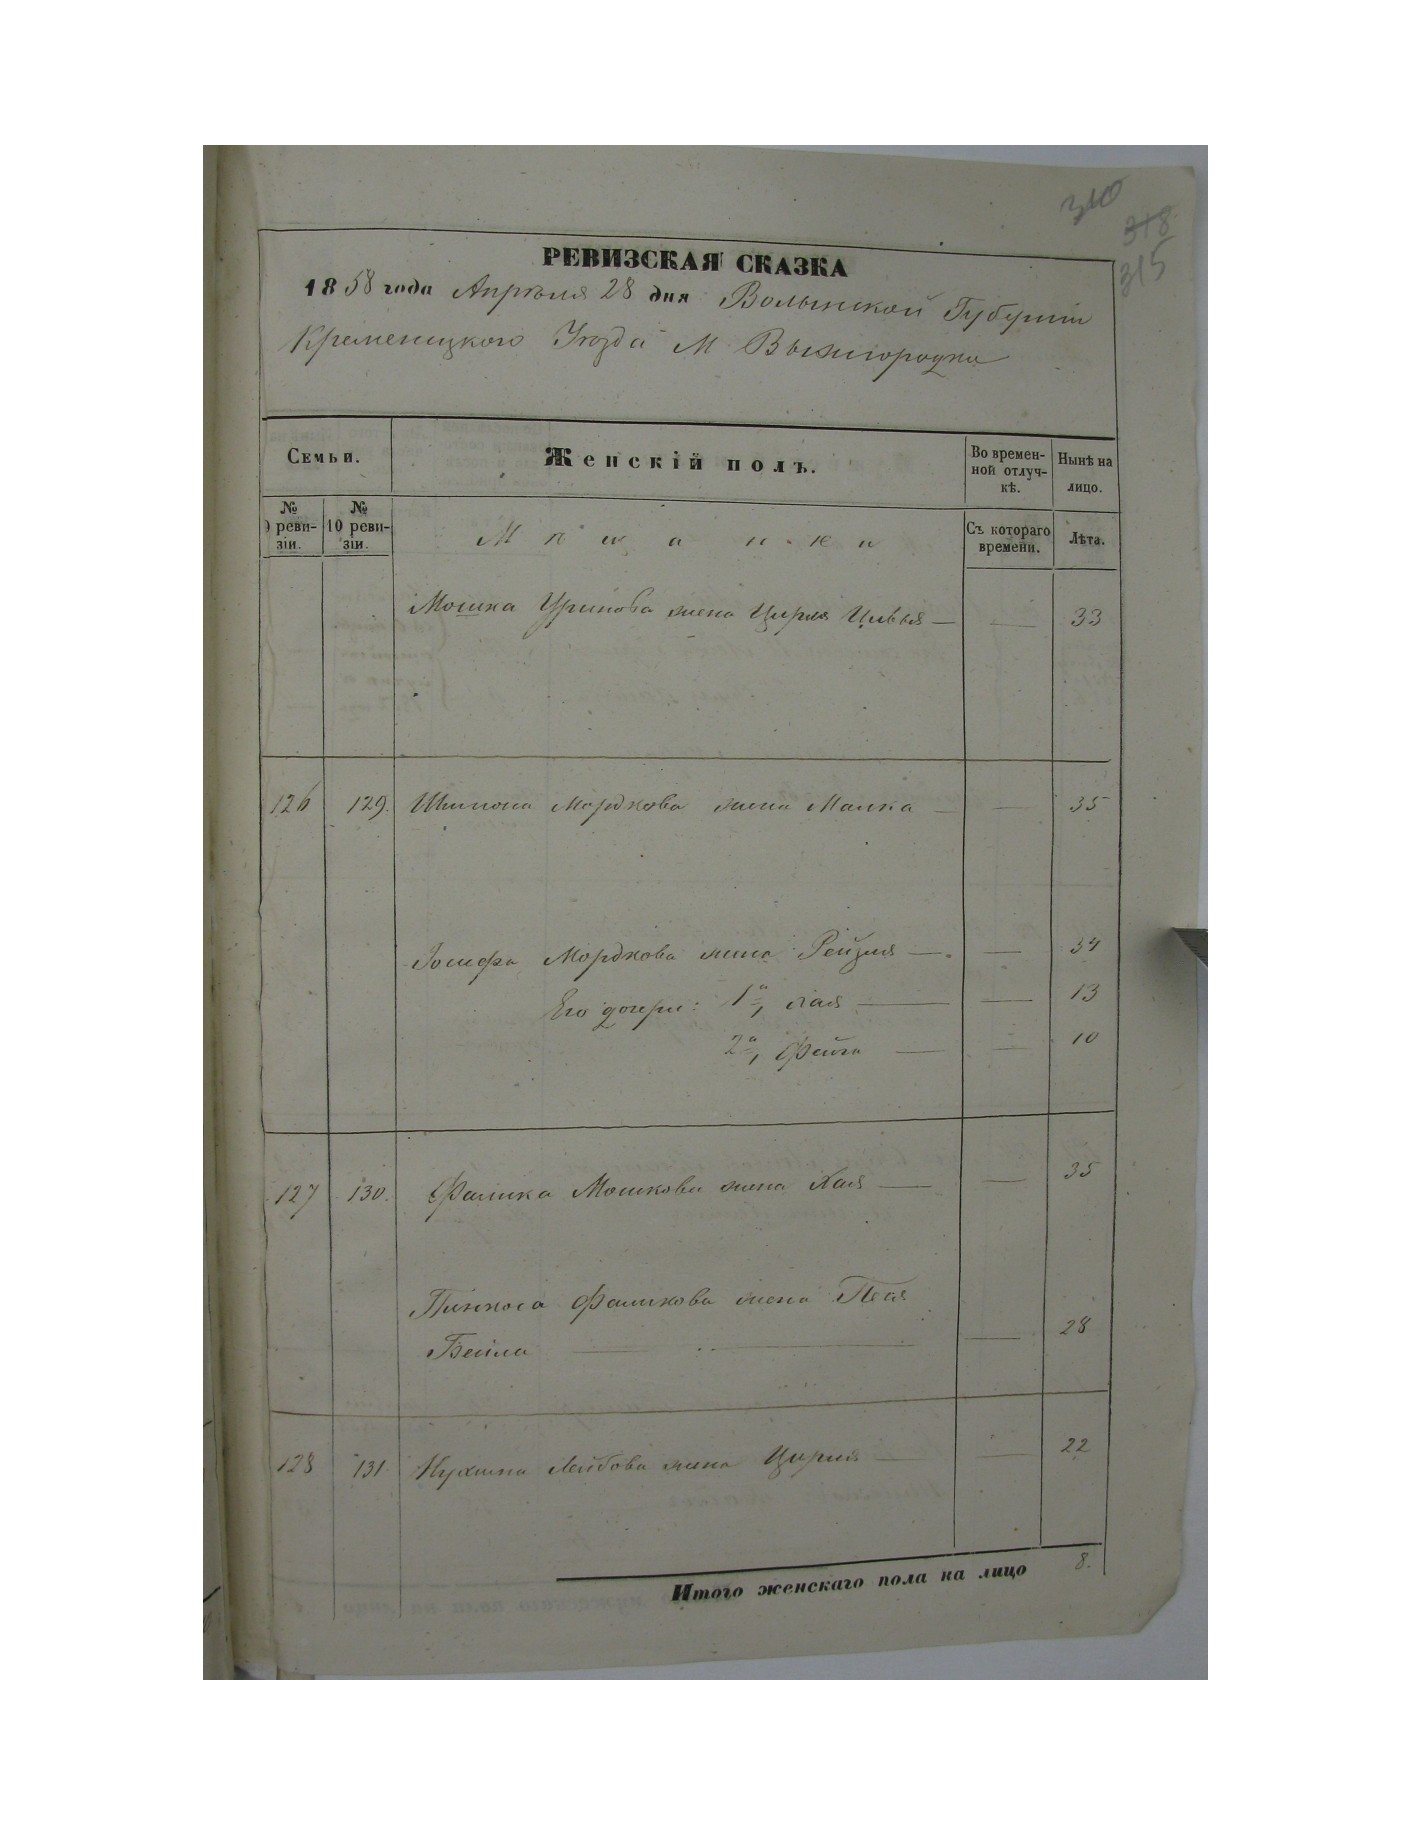 310
318
315
РЕВИЗСКАЯ СКАЗКА
1858 года Апрѣля 28 дня Волынской Губерніи
Кременецкого Уезда М Вышгородка
Семьи.
Женскій полъ.
Во времен-
ной отлуч-
кѣ.
Нынѣ на
лицо.
№
9 реви-
зіи.
№
10 реви-
зіи.
Мѣщанки
Съ котораго
времени.
Лѣта.
Мошка Урипова жена Цирля Цивья — — 33
126 129. Шимона Мордкова жена Малка — — 35
Іосифа Мордкова жена Рейзля — — 34
Его дочери: 1я, Хая — — 13
2я, Фейга — — 10
127 130. Фалика Мошкова жена Хая — — 35
Пинкоса Фаликова жена Песя
Бейла — — — 28
128 131. Нухима Лейбова жена Цирля — — 22
Итого женскаго пола на лицо 8.